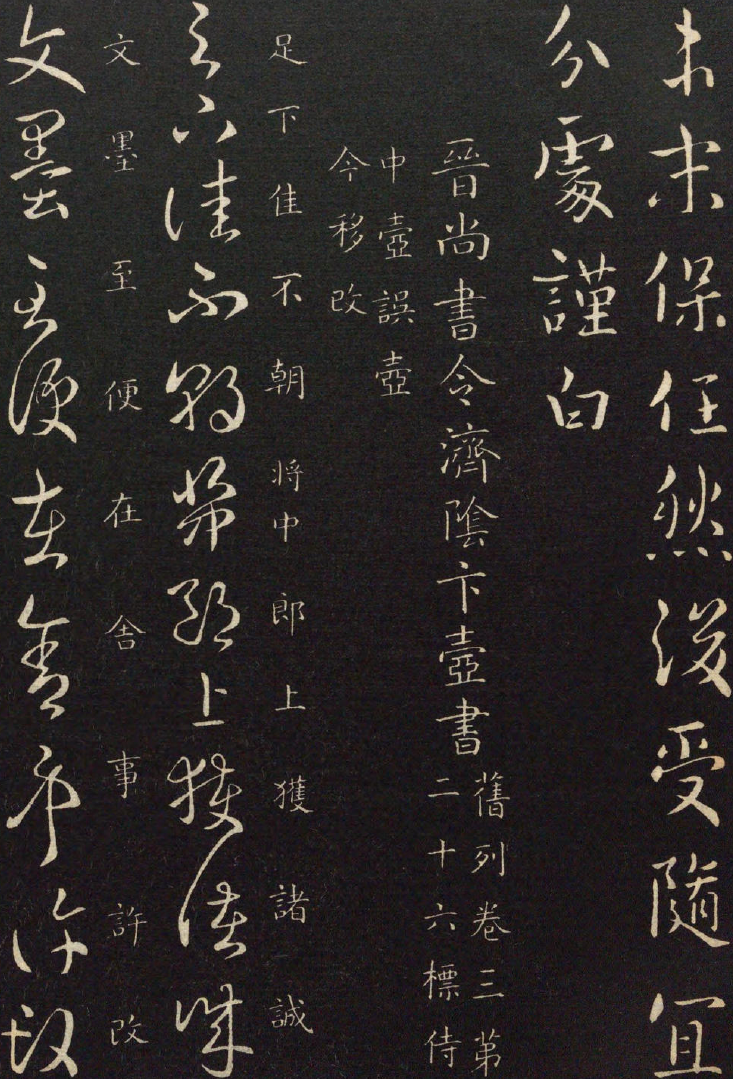 本末保任然後受隨宜
分處謹白
晉尚書令濟陰卞壼書
舊列卷三第
二十六標侍
中壼誤壺
今移改
足下佳不朝將中郎上獲諸誠
足下佳不朝將中郎上獲諸誠
文墨至便在舍事許改
文墨至便在舍事許改